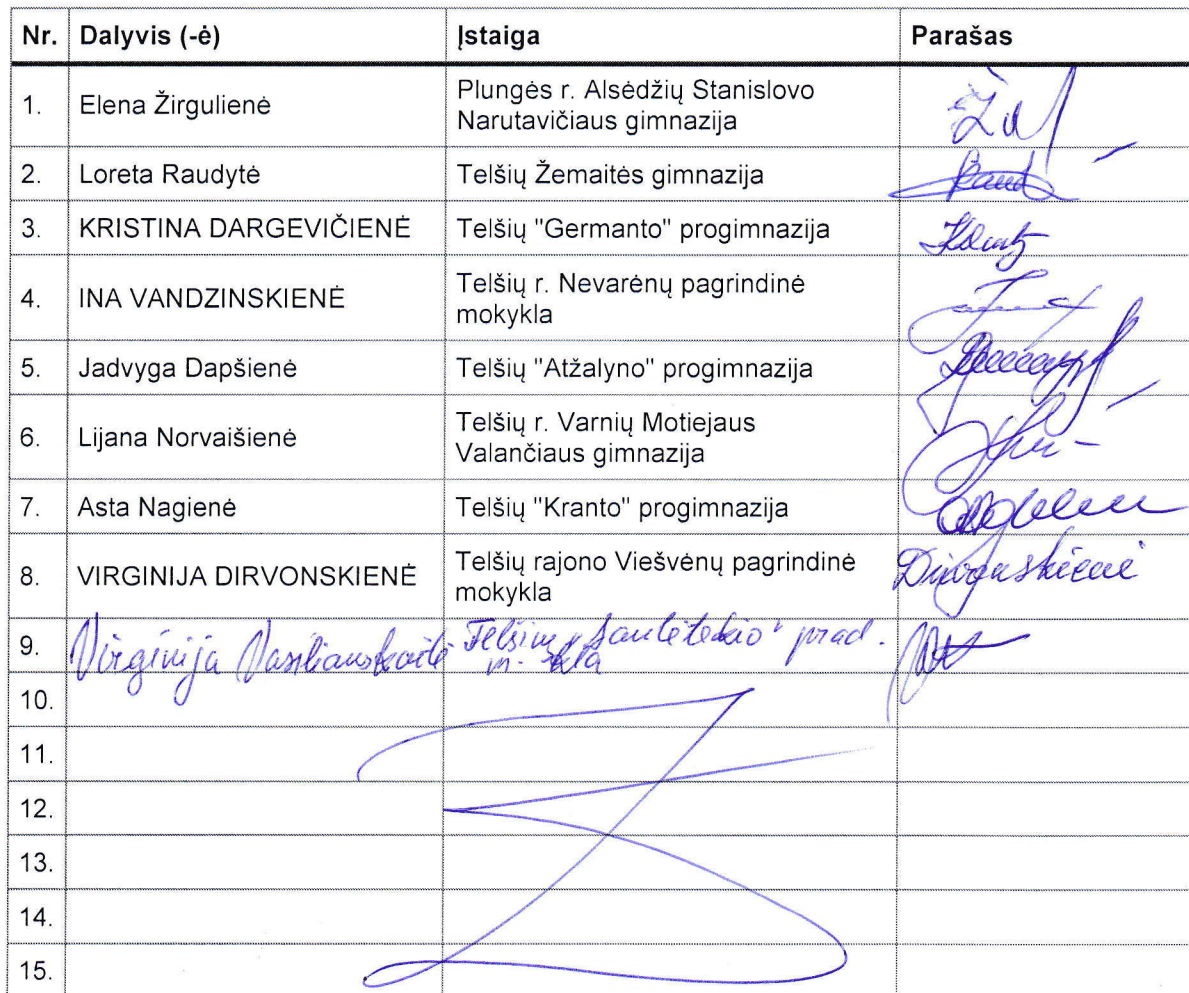 Nr. Dalyvis (-ė) Įstaiga Parašas
1. Elena Žirgulienė Plungės r. Alsėdžių Stanislovo
Narutavičiaus gimnazija
2. Loreta Raudytė Telšių Žemaitės gimnazija
3. KRISTINA DARGEVIČIENĖ Telšių "Germanto" progimnazija
4. INA VANDZINSKIENĖ Telšių r. Nevarėnų pagrindinė
mokykla
5. Jadvyga Dapšienė Telšių "Atžalyno" progimnazija
6. Lijana Norvaišienė Telšių r. Varnių Motiejaus
Valančiaus gimnazija
7. Asta Nagienė Telšių "Kranto" progimnazija
8. VIRGINIJA DIRVONSKIENĖ Telšių rajono Viešvėnų pagrindinė Dirvonskienė
mokykla
9. Virginija Vasiliauskaitė Telšių „Saulėtekio“ prad.
m-kla
10.
11.
12.
13.
14.
15.